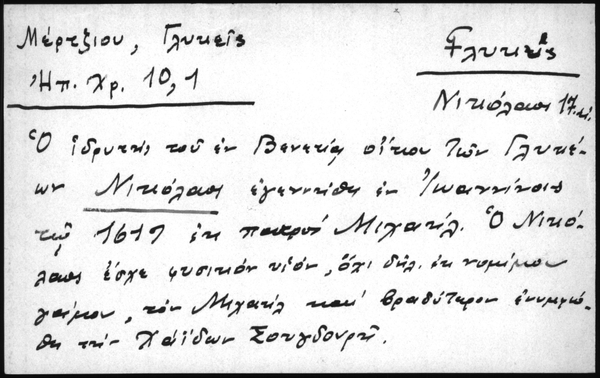 Μέρτζιου, Γλυκεῖς
Ἠπ. Χρ. 10,1
Γλυκεῖς
Νικόλαος 17 αἰ.
Ὁ ἱδρυτὴς τοῦ ἐν Βενετίᾳ οἴκου τῶν Γλυκέ-
ων Νικόλαος ἐγεννήθη ἐν Ἰωαννίνοις
τῷ 1617 ἐκ πατρὸς Μιχαήλ. Ὁ Νικό-
λαος ἔσχε φυσικὸν υἱόν, ὄχι δηλ. ἐκ νομίμου
γάμου, τὸν Μιχαὴλ καὶ βραδύτερον ἐνυμφεύ-
θη τὴν Χάϊδων Σουγδουρῆ.